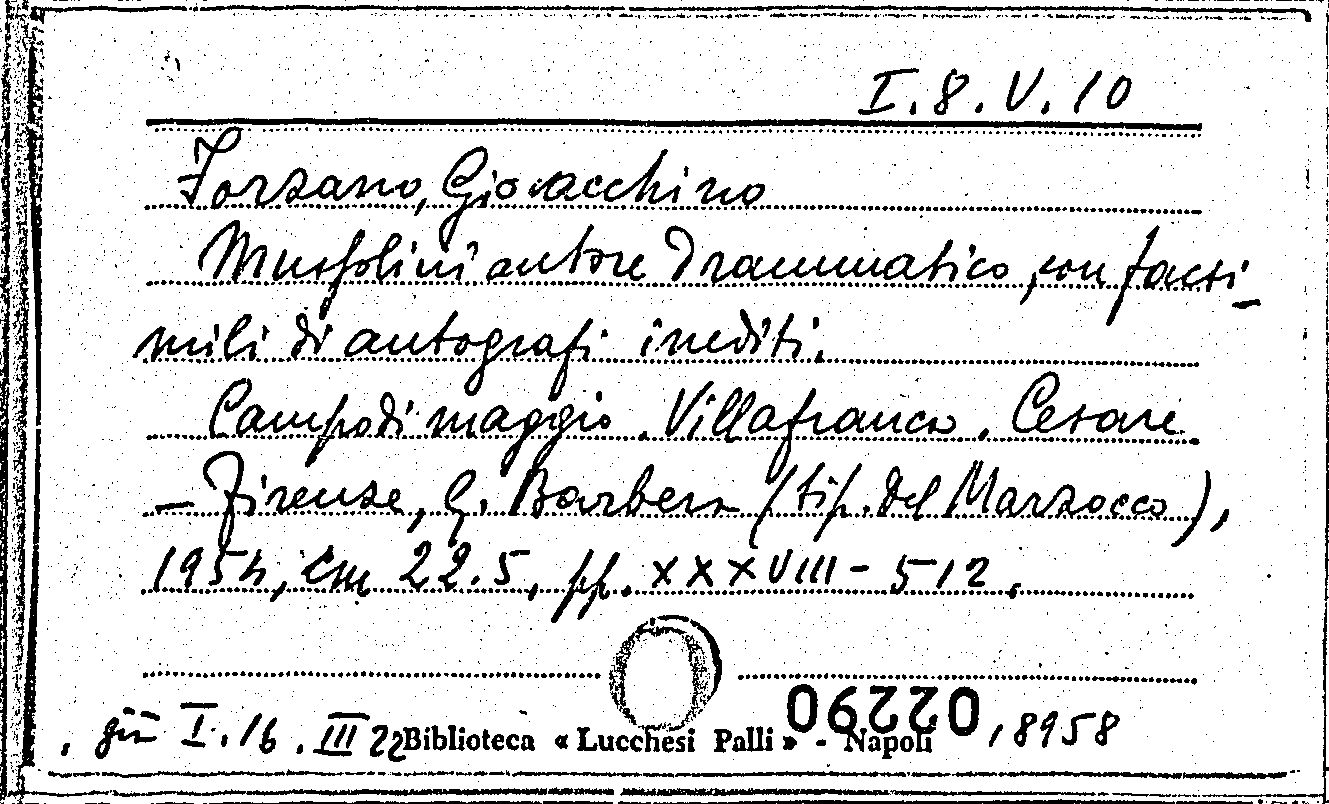 I.8.V.10
Forzano, Giovacchino
Mussolini autore drammatico, con facsi-
mili di autografi inediti.
Campo di maggio. Villafranca. Cesare.
— Firenze, G. Barbera (tip. del Marzocco),
1954, cm 22.5, pp. XXXVIII - 512.
02290
già I.16.III 22 Biblioteca « Lucchesi Palli » - Napoli ,8958